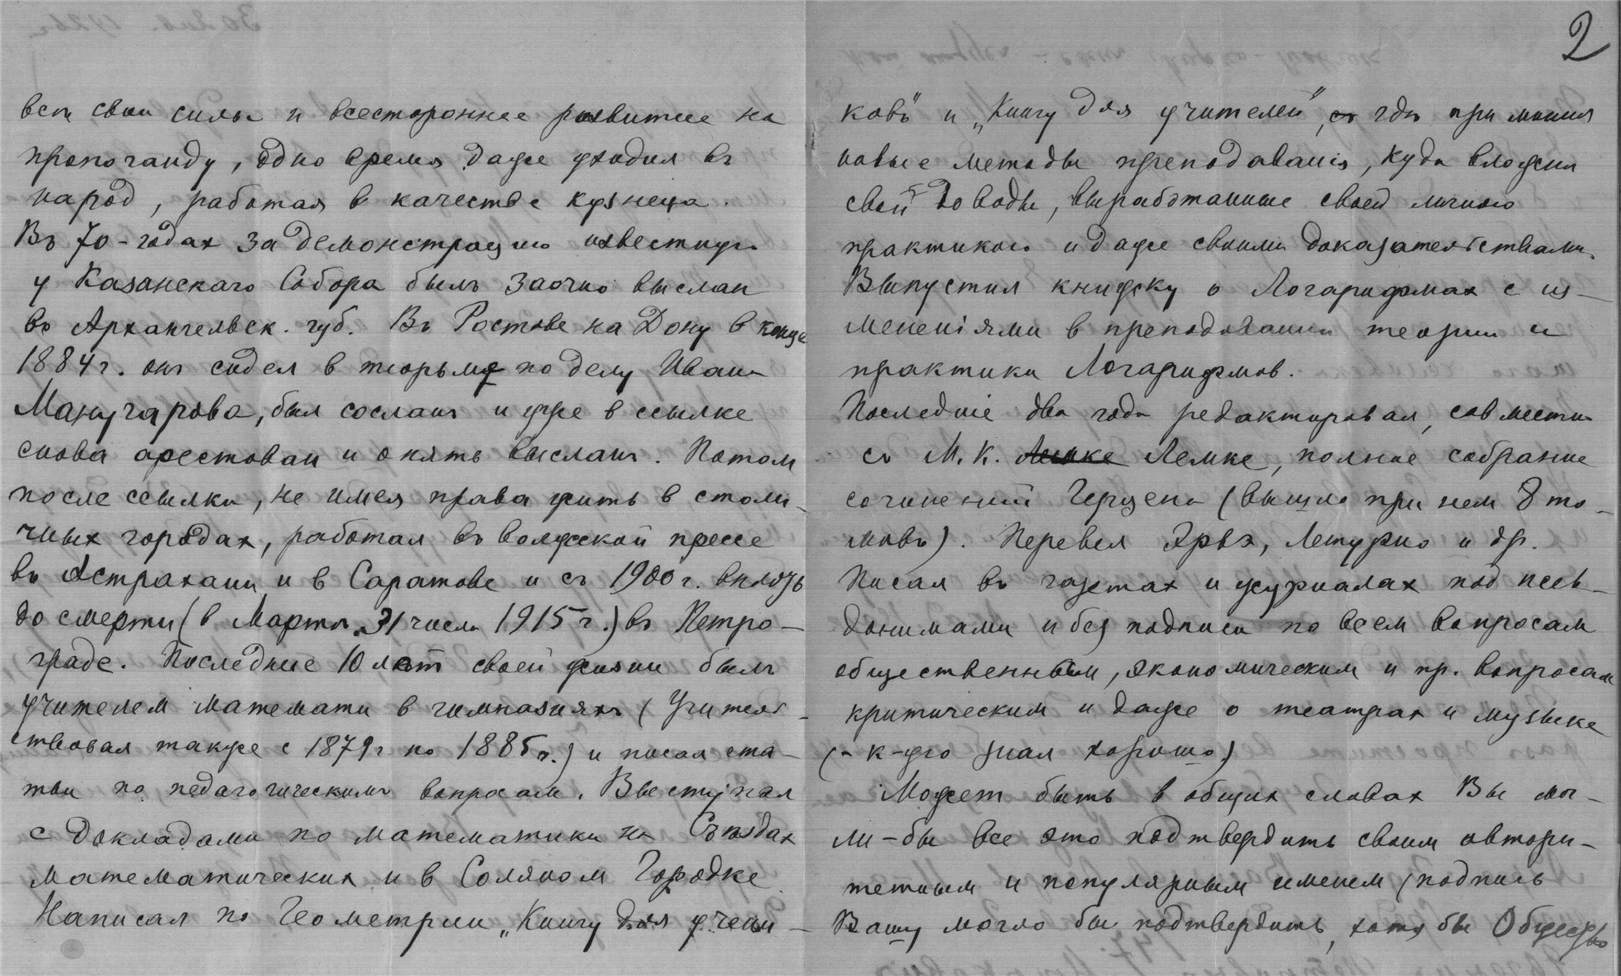 все свои силы и всестороннее развитие на
пропоганду, одно время даже уходил въ
народ, работая в качестве кузнеца.
Въ 70-годах за демонстрацию известную
у Казанскаго Собора былъ заочно выслан
въ Архангельск. губ. Въ Ростове на Дону в конце
1884 г. онъ сидел в тюрьме по делу Ивана
Манучарова, был сосланъ и уже в ссылке
снова арестован и опять высланъ. Потом
после ссылки, не имея права жить в столи-
чных городах, работал въ волжской прессе
въ Астрахани и в Саратове и съ 1900 г. вплоть
до смерти (в Марте 31 числа 1915 г.) въ Петро-
граде. Последние 10 лет своей жизни былъ
учителем математи в гимназияхъ (Учитель-
ствовал также с 1879 г по 1885 г.) и писал ста-
тьи по педагогическимъ вопросам. Выступал
с докладами по математики на Съездах
математических и в Соляном Городке.
Написал по Геометрии „Книгу для учени-
2
ковъ" и „Книгу для учителей", где применил
новые методы преподаванія, куда вложил
свои доводы, выработанные своей личною
практикою и даже своими доказательствами.
Выпустил книжку о Логарифмах с из-
мененіями в преподавании теории и
практики Логарифмов.
Последніе два года редактировал, совместно
съ М. К. Лемке, полное собрание
сочинений Герцена (вышло при нем 8 то-
мовъ). Перевел Эрвэ, Летурно и др.
Писал въ газетах и журналах под псев-
донимами и без подписи по всем вопросам
общественным, экономическим и пр. вопросам
критическим и даже о театрах и музыке
(- к-ую знал хорошо)
Может быть в общих словах Вы мог-
ли-бы все это подтвердить своим автори-
тетным и популярным именем (подпись
Вашу могло бы подтвердить, хотя бы Общество